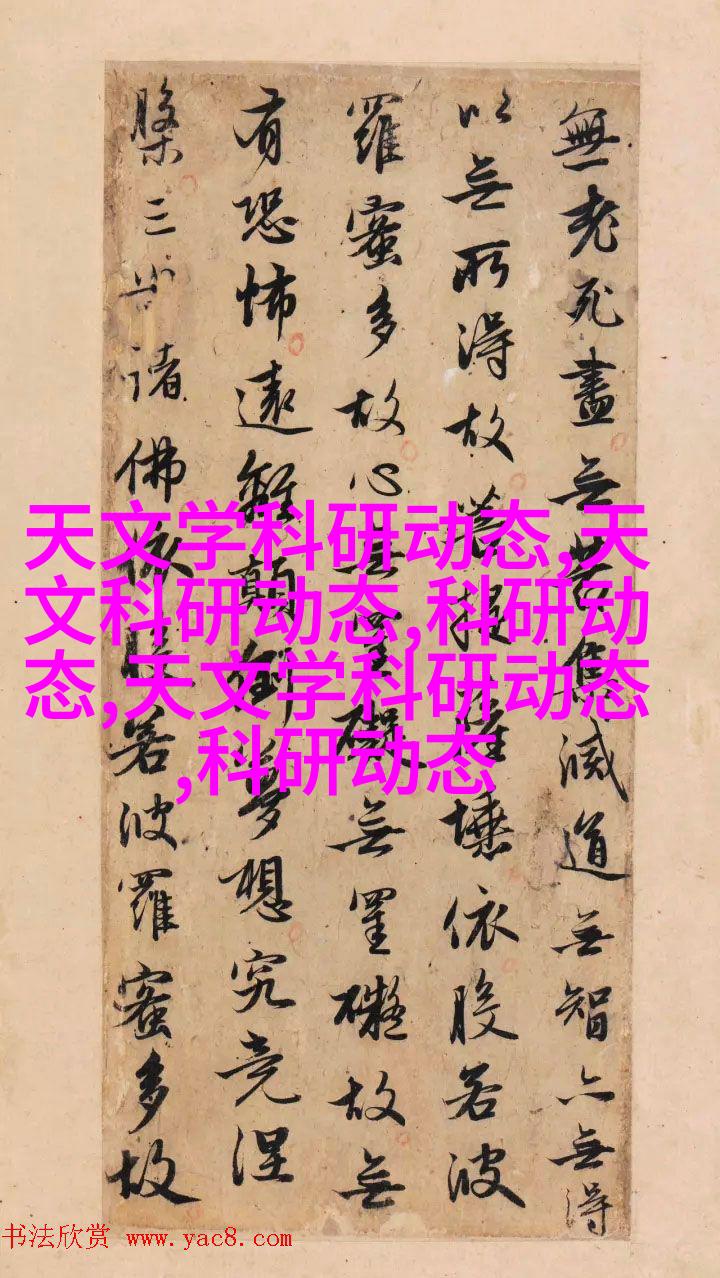 無老死盡无苦集滅道无智亦無得
以无所得故菩提薩埵依般若波
羅蜜多故心無罣礙無罣礙故無
有恐怖遠離顛倒夢想究竟涅
槃三世諸佛依般若波羅蜜多故
天文学科研动态,天
文科研动态,科研动
态,天文学科研动态
,科研动态
书法欣赏 www.yac8.com